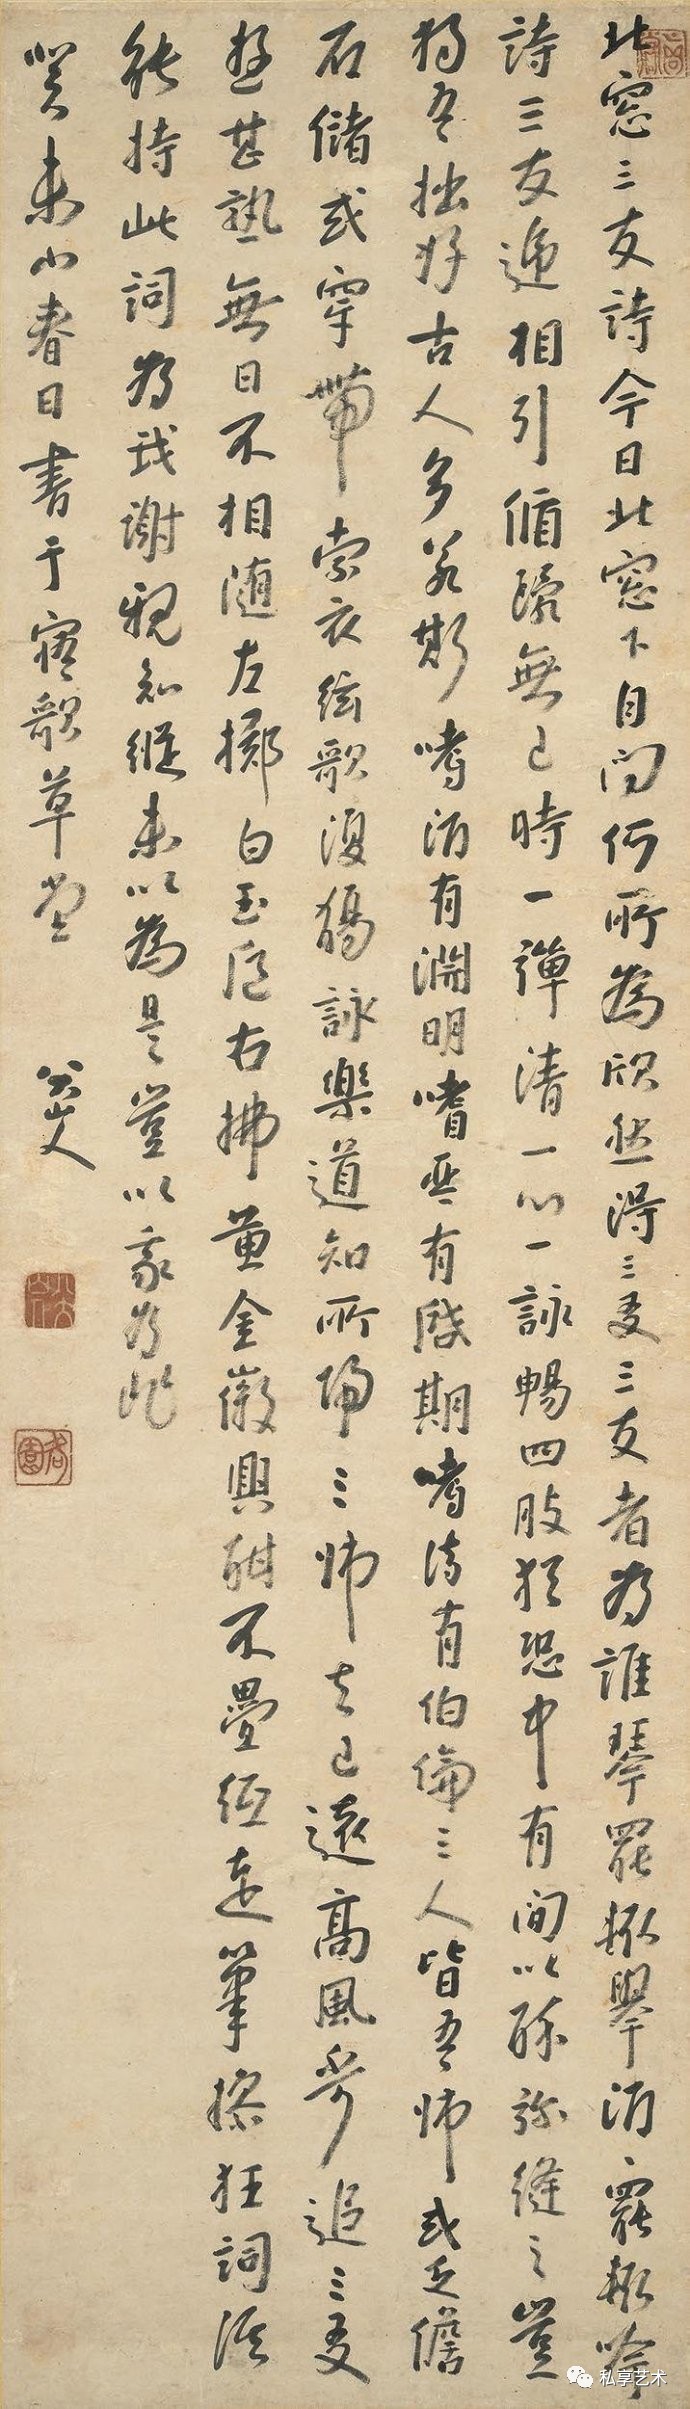 北窓三友詩今日北窓下自问何所為欣然得三友三友者为誰琴罷輒舉酒〻罷輒吟
詩三友逓相引循環無已時一彈清一心一詠暢四肢猶恐中有间以酔弥縫之豈
獨吾拙好古人多若斯嗜酒有淵明嗜琴有啟期嗜詩有伯倫三人皆吾師或乏儋
石儲或穿帶索衣絃歌復觴詠樂道知所歸三師去已遠高風不可追三友
遊甚熟無日不相随左擲白玉卮右拂黄金徽興酣不疊紙走筆操狂詞誰
能持此詞为我謝親知縱未以為是豈以我为非
癸未小春日書于寤歌草堂
八大山人
私享艺术